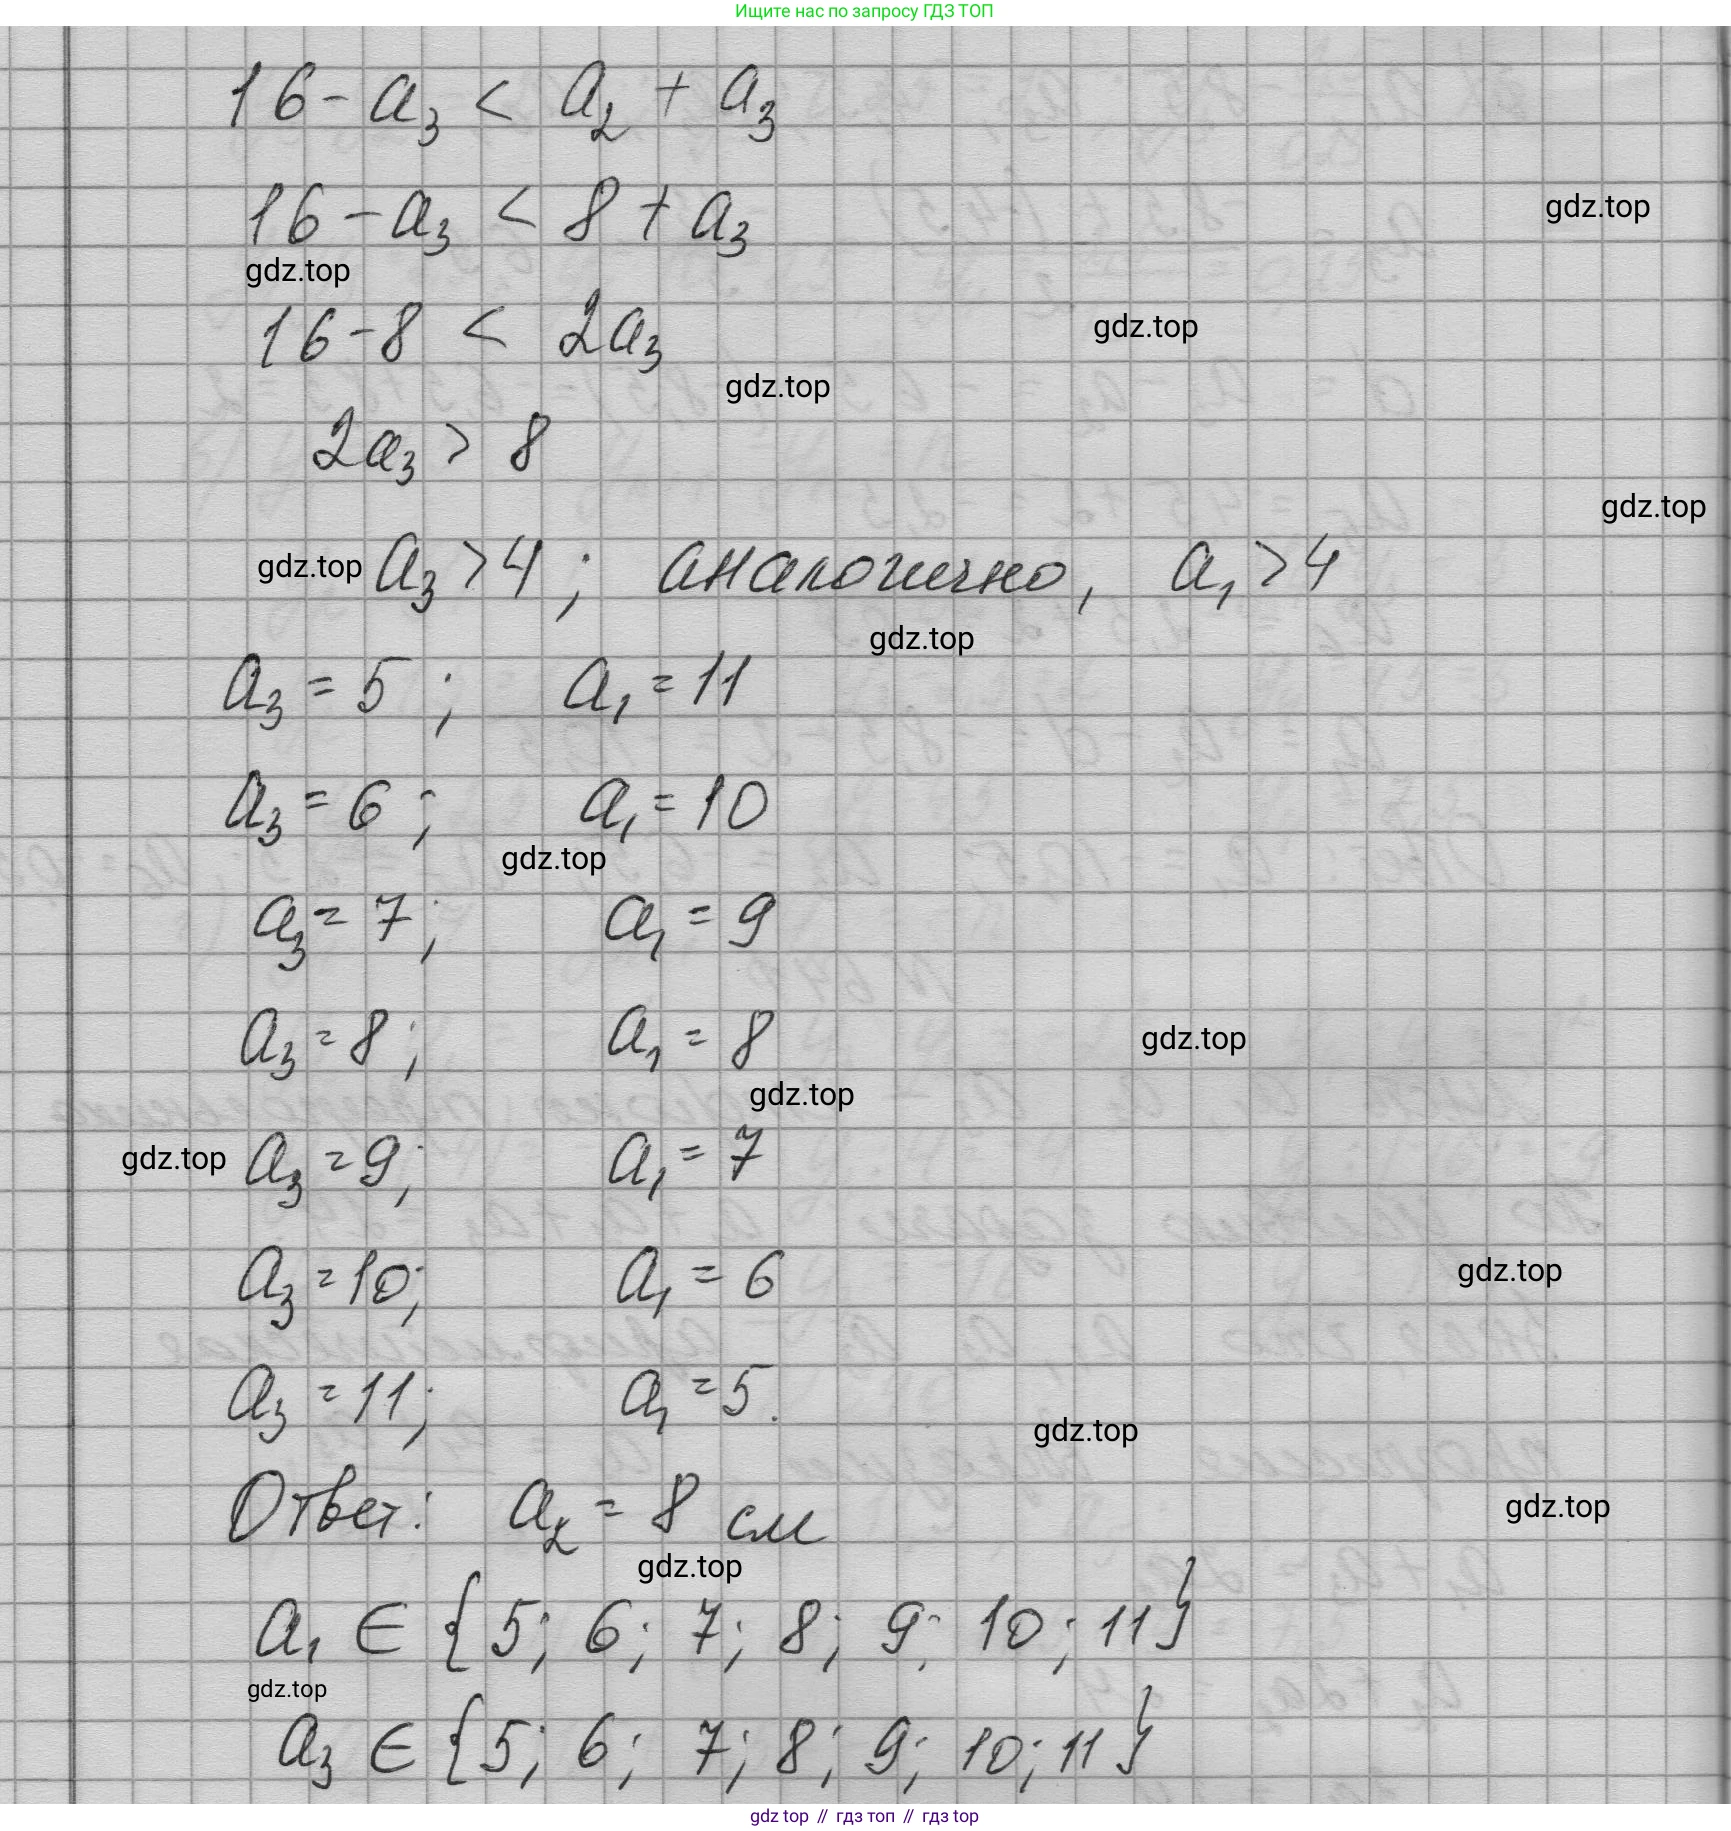 Ищите нас по запросу ГДЗ ТОП
16 - a₃ < a₂ + a₃
16 - a₃ < 8 + a₃
gdz.top
gdz.top
16 - 8 < 2a₃
gdz.top
gdz.top
2a₃ > 8
gdz.top
gdz.top a₃ > 4; аналогично, a₁ > 4
gdz.top
a₃ = 5; a₁ = 11
a₃ = 6; a₁ = 10
gdz.top
a₃ = 7; a₁ = 9
a₃ = 8; a₁ = 8
gdz.top
gdz.top
gdz.top a₃ = 9; a₁ = 7
a₃ = 10; a₁ = 6
gdz.top
a₃ = 11; a₁ = 5.
gdz.top
Ответ: a₂ = 8 см
gdz.top
gdz.top
a₁ ∈ {5; 6; 7; 8; 9; 10; 11}
gdz.top
a₃ ∈ {5; 6; 7; 8; 9; 10; 11}
gdz top // гдз топ // гдз top